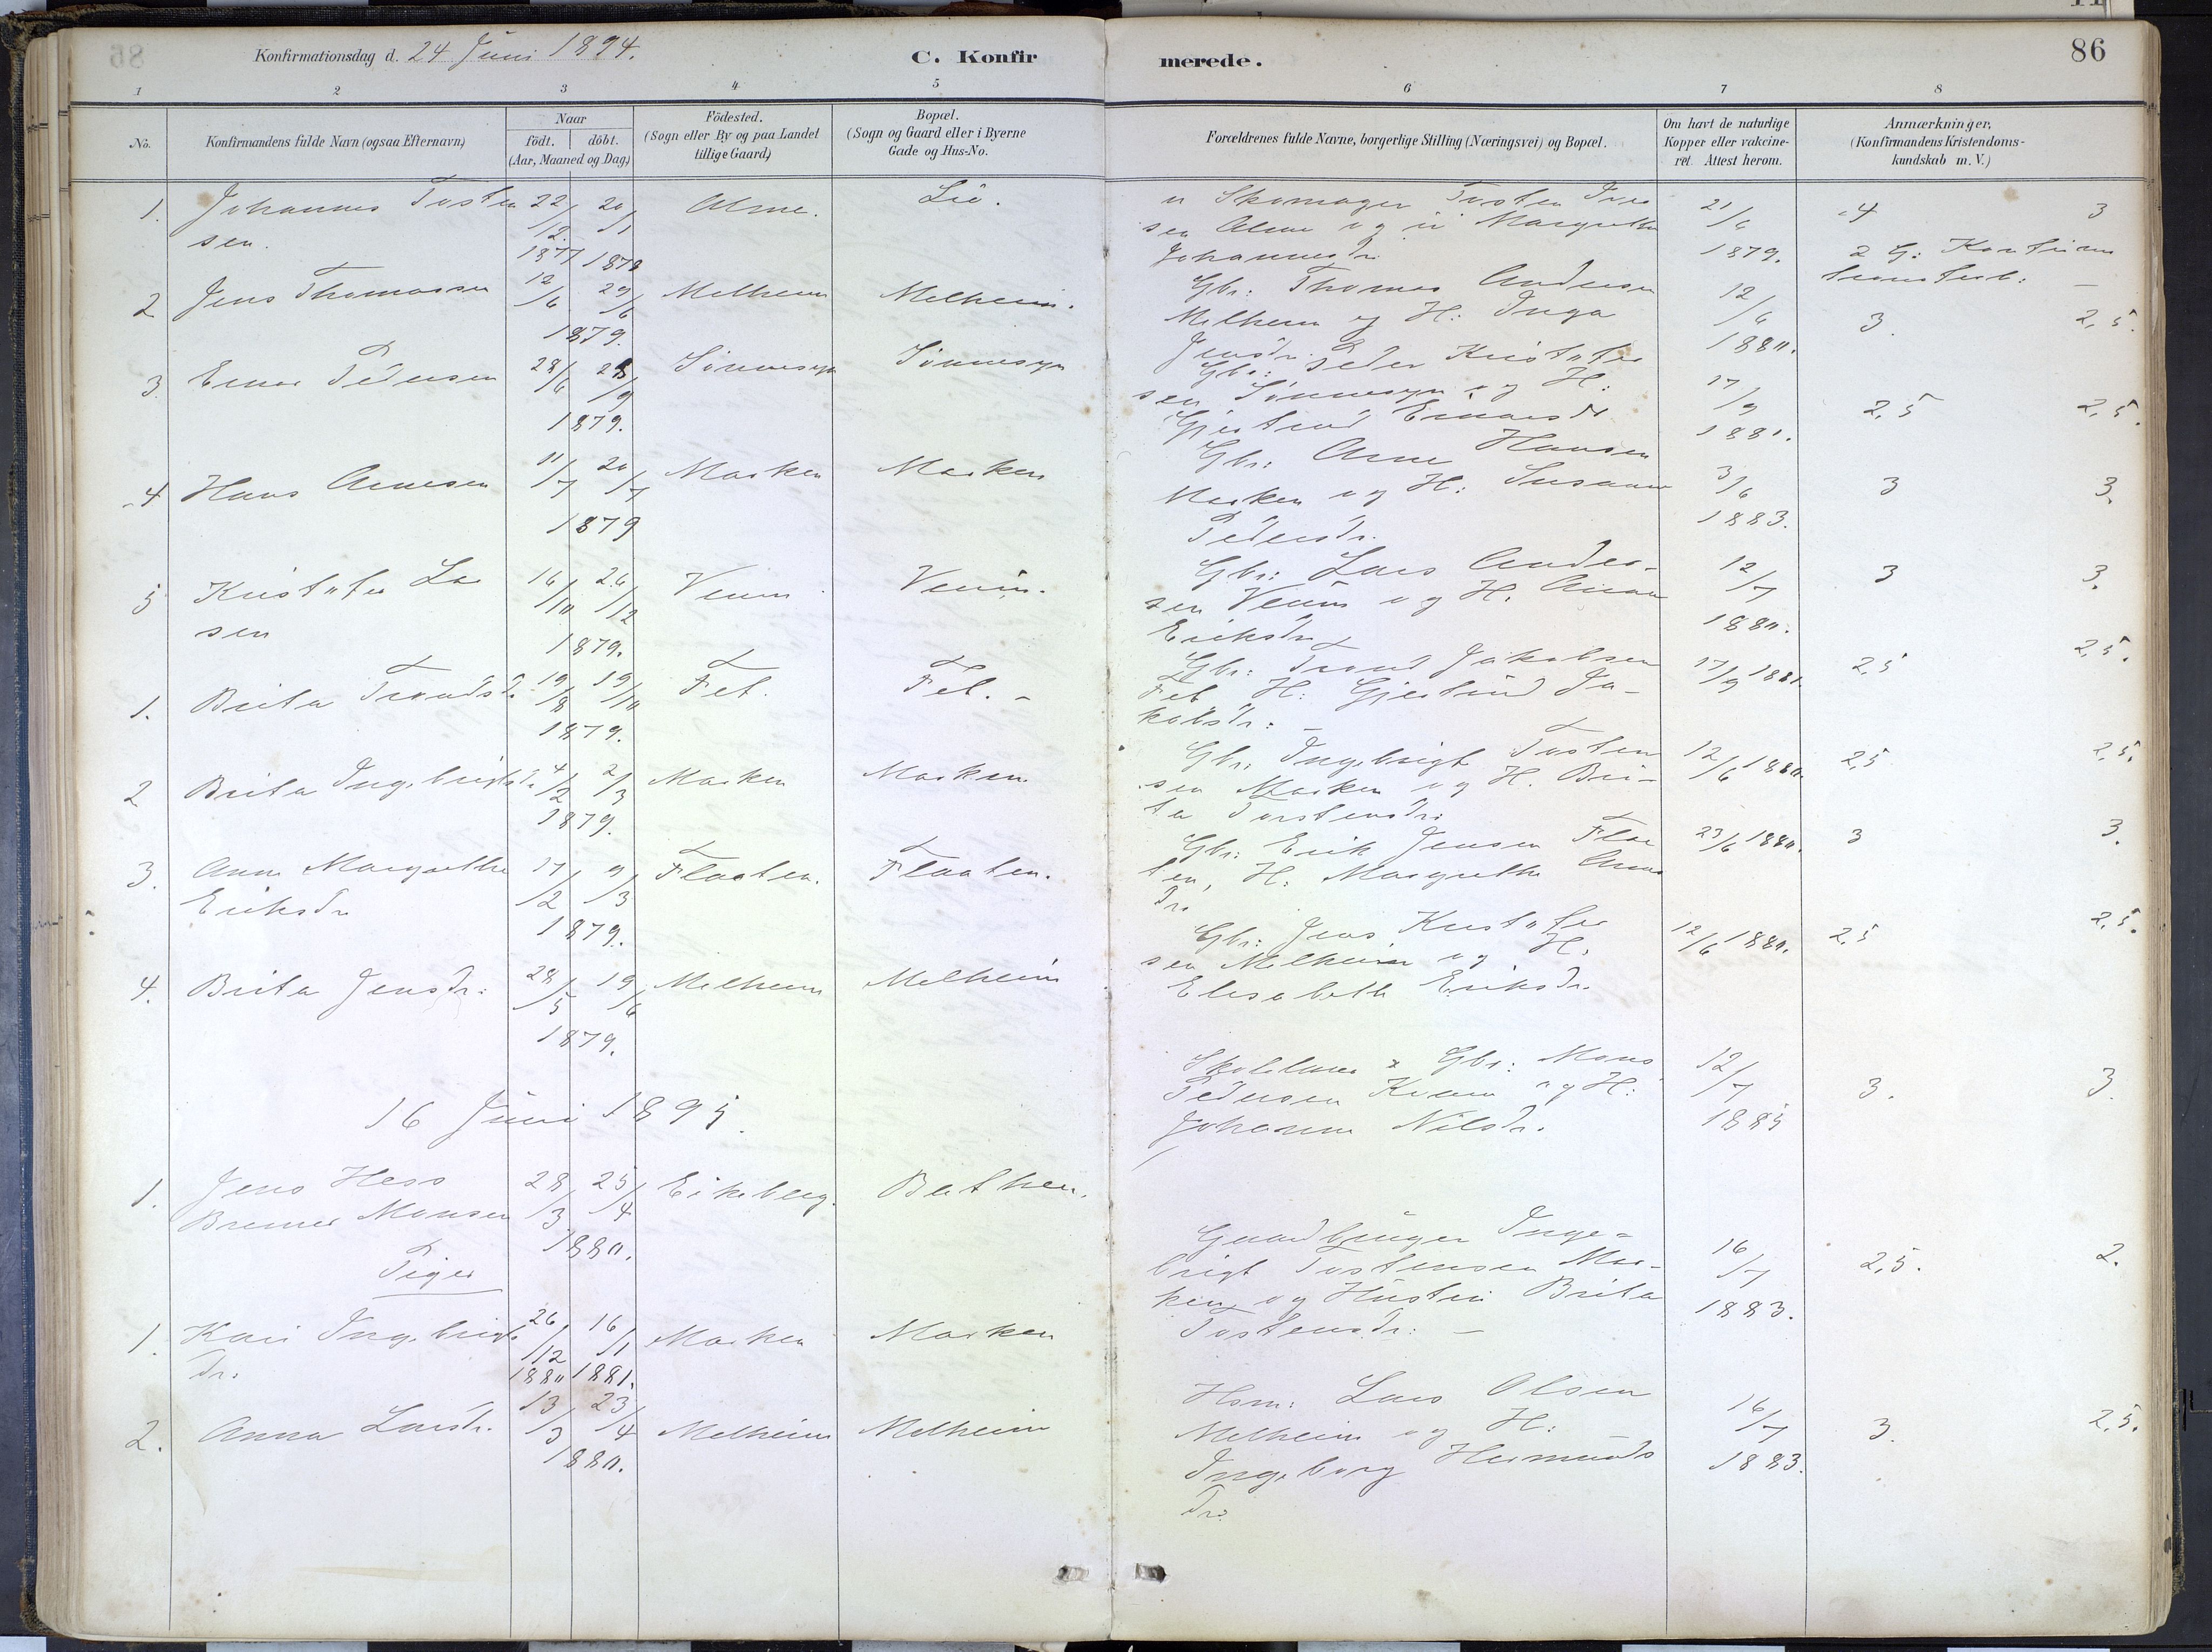 Konfirmationsdag d. 24 Juni 1894.
C. Konfirmerede.
86
1 2 3 4 5 6 7 8
No.
Konfirmandens fulde Navn (ogsaa Efternavn)
Naar
födt. döbt.
(Aar, Maaned og Dag)
Födested.
(Sogn eller By og paa Landet
tillige Gaard)
Bopæl.
(Sogn og Gaard eller i Byerne
Gade og Hus-No.
Forældrenes fulde Navne, borgerlige Stilling (Næringsvei) og Bopæl.
Om havt de naturlige
Kopper eller vakcine-
ret. Attest herom.
Anmærkninger,
(Konfirmandens Kristendoms-
kundskab m. V.)
1. Johannes Tosten
sen.
22/12 1877 20/1 1878
Alme. Lie.
Skomager Tosten
sen Alme og Margrethe
Johannesdr.
21/6 1879. 4 3
2 Jens Thomassen
12/6 29/6
1879.
Melheim Melheim.
Gbr: Thomas Andersen
Melheim og H: Inga
Jensdr.
12/6 1880. 3. 2,5.
3. Einar Pedersen
28/6 28/9
1879.
Sønnesyn Sønnesyn
Gbr: Peder Kristofer
sen Sønnesyn og H:
Gjertrud Einarsdr
17/9 1881. 2,5 2,5.
4 Hans Arnesen
11/7 20/7
1879
Marken Marken
Gbr: Arne Hansen
Marken og H: Susanne
Pedersdr.
3/6 1883. 3 3.
5 Kristofer La
sen
16/10 26/12
1879.
Venm. Venm.
Gbr: Lars Ander-
sen og H. Anna
Eriksdr
12/7 1880. 3 3.
1. Brita Trondsdr
19/8 19/10
1879.
Fet. Fet. -
Gbr: Trond Jakobsen
Fet, H: Gjertrud Ja-
kobsdr: -
17/9 1881. 2,5 2,5.
2 Brita Ingebrigtsdr
4/2 2/3
1879.
Marken Marken
Gbr. Ingebrigt Tosten
sen Marken og H. Bri-
ta Torstensdr:
12/6 1880. 2,5 2,5.
3. Anna Margrethe
Eriksdr
17/2 9/3
1879.
Flaaten. Flaaten.
Gbr: Erik Jensen Flaa
ten, H: Margrethe Anna
dr.
23/6 1880. 3 3.
4. Brita Jensdr:
28/5 19/6
1879.
Melheim Melheim
Gbr: Jens Kristofer
sen Melheim og H.
Elisabeth Eriksdr.
12/6 1880. 2,5 2,5.
16 Juni 1895.
1. Jens Hess
Bremer Monsen
28/3 25/4
1880.
Eikeberg. Bethen.
Skolelærer & Gbr: Mons
Pedersen Kvam og H:
Johanne Nilsdr.
12/7 1885 3. 3.
Piger
1. Kari Ingebrigts
dr.
26/12 1880 16/1 1881.
Marken Marken
Gaardbruger Inge-
brigt Tostensen Mar-
ken og Hustru Brita
Tostensdr: -
16/7 1883. 2,5. 2.
2. Anna Larsdr.
13/3 23/4
1880.
Melheim Melheim
Hsm: Lars Olsen
Melheim og H:
Ingeborg Hermunds
dr.
16/7 1883. 3. 2,5.